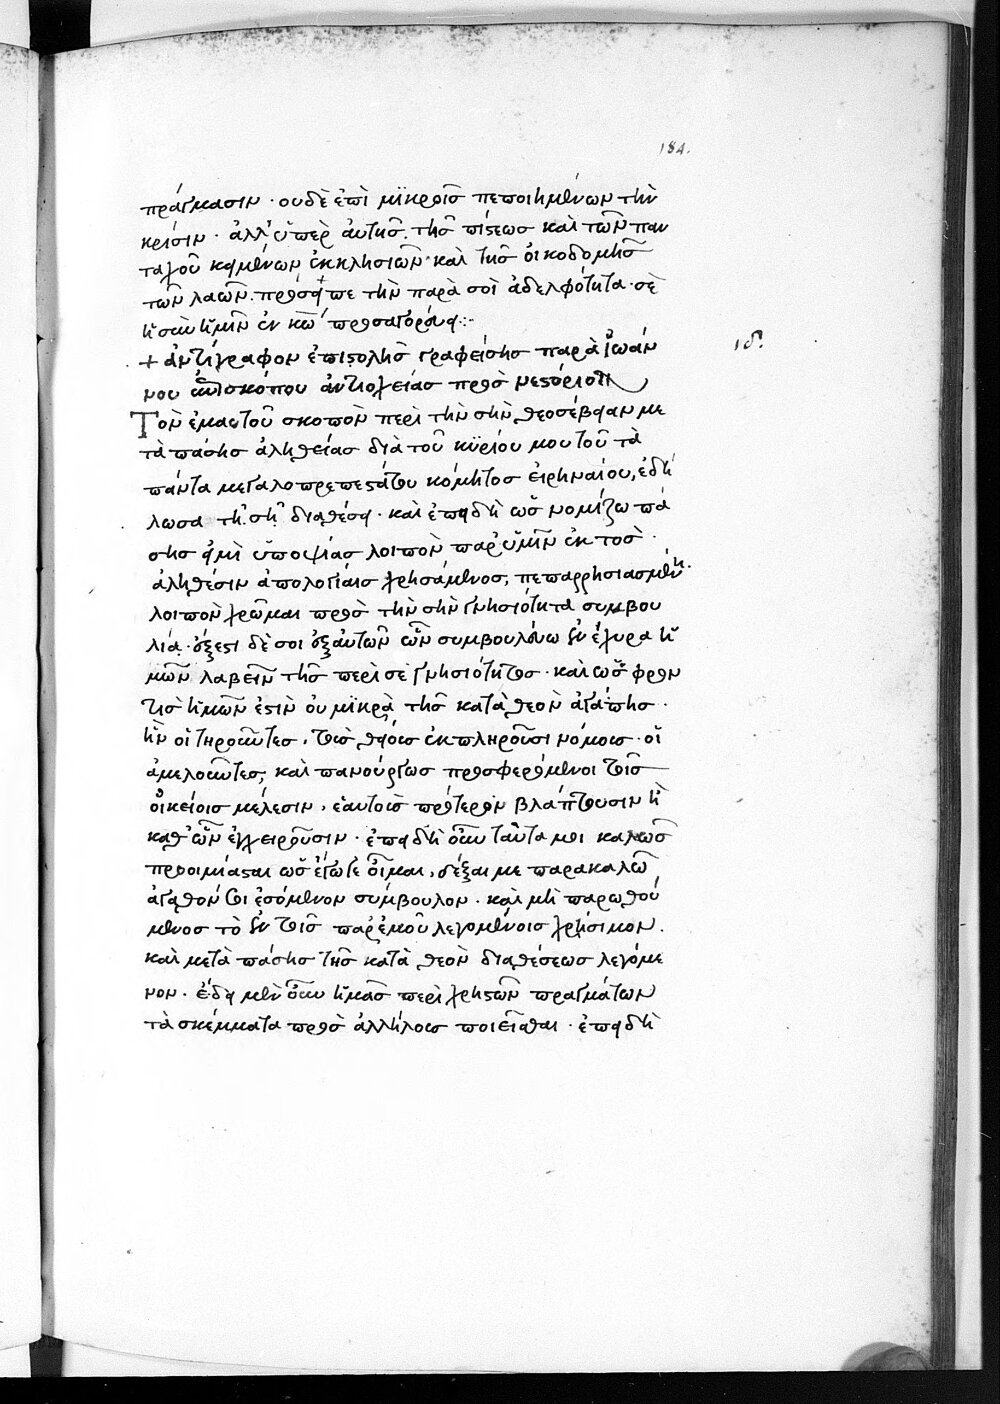 184.
πράγμασιν · οὐδὲ ἐπὶ μϊκροῖς πεποιημένων τὴν
κρίσιν · ἀλλ' ὑπὲρ ἀυτῆς τῆς πίστεως καὶ τῶν παν
ταχοῦ κειμένων ἐκκλησιῶν · καὶ τῆς οἰκοδομῆς
τῶν λαῶν. πρόσειπε τὴν παρὰ σοὶ ἀδελφότητα · σὲ
ἡ σὺν ἡμῖν ἐν κ̅ω̅ προσαγορεύει :·
+ ἀντίγραφον ἐπιστολῆς γραφείσης παρὰ ἰωάν
νου ἐπισκόπου ἀντιοχείας πρὸς νεστόριον
ιδ.
Τὸν ἐμαυτοῦ σκοπὸν περὶ τὴν σὴν θεοσέβειαν με
τὰ πάσης ἀληθείας διὰ τοῦ κυρίου μου τοῦ τὰ
πάντα μεγαλοπρεπεστάτου κόμητος εἰρηναίου, ἐδή
λωσα τῆ σῆ διαθέσει · καὶ ἐπειδὴ ὡς νομίζω πά
σης εἰμὶ ὑποψίας λοιπὸν παρ' ὑμῖν ἐκτὸς ·
ἀληθέσιν ἀπολογίαις χρησάμενος, πεπαρρησιασμένη
λοιπὸν χρῶμαι πρὸς τὴν σὴν γνησιότητα συμβου
λία · ἔξεστι δέ σοι ἐξ αὐτῶν ὧν συμβουλεύω ἐνέχυρα ἡ
μῶν λαβεῖν τῆς περὶ σὲ γνησιότητος · καὶ ὡς φρον
τὶς ἡμῶν ἐστὶν οὐ μϊκρὰ τῆς κατὰ θεὸν ἀγάπης ·
ἣν οἱ τηροῦντες, τοὺς θείους ἐκπληροῦσι νόμους · οἱ
ἀμελοῦντες, καὶ πανούργως προσφερόμενοι τοῖς
οἰκείοις μέλεσιν, ἑαυτοὺς πρότερον βλάπτουσιν ἢ
καθ' ὧν ἐγχειροῦσιν · ἐπειδὴ οὖν ταῦτα μοι καλῶς
προοιμίασται ὡς ἔγωγε οἶμαι, δέξαι με παρακαλῶ
ἀγαθόν τοι ἐσόμενον σύμβουλον · καὶ μὴ παρωθού
μενος τὸ ἐν τοῖς παρ' ἐμοῦ λεγομένοις χρήσιμον.
καὶ μετὰ πάσης τῆς κατὰ θεὸν διαθέσεως λεγόμε
νον · ἔδει μὲν οὖν ἡμᾶς περὶ χρηστῶν πραγμάτων
τὰ σκέμματα πρὸς ἀλλήλους ποιεῖσθαι · ἐπειδὴ